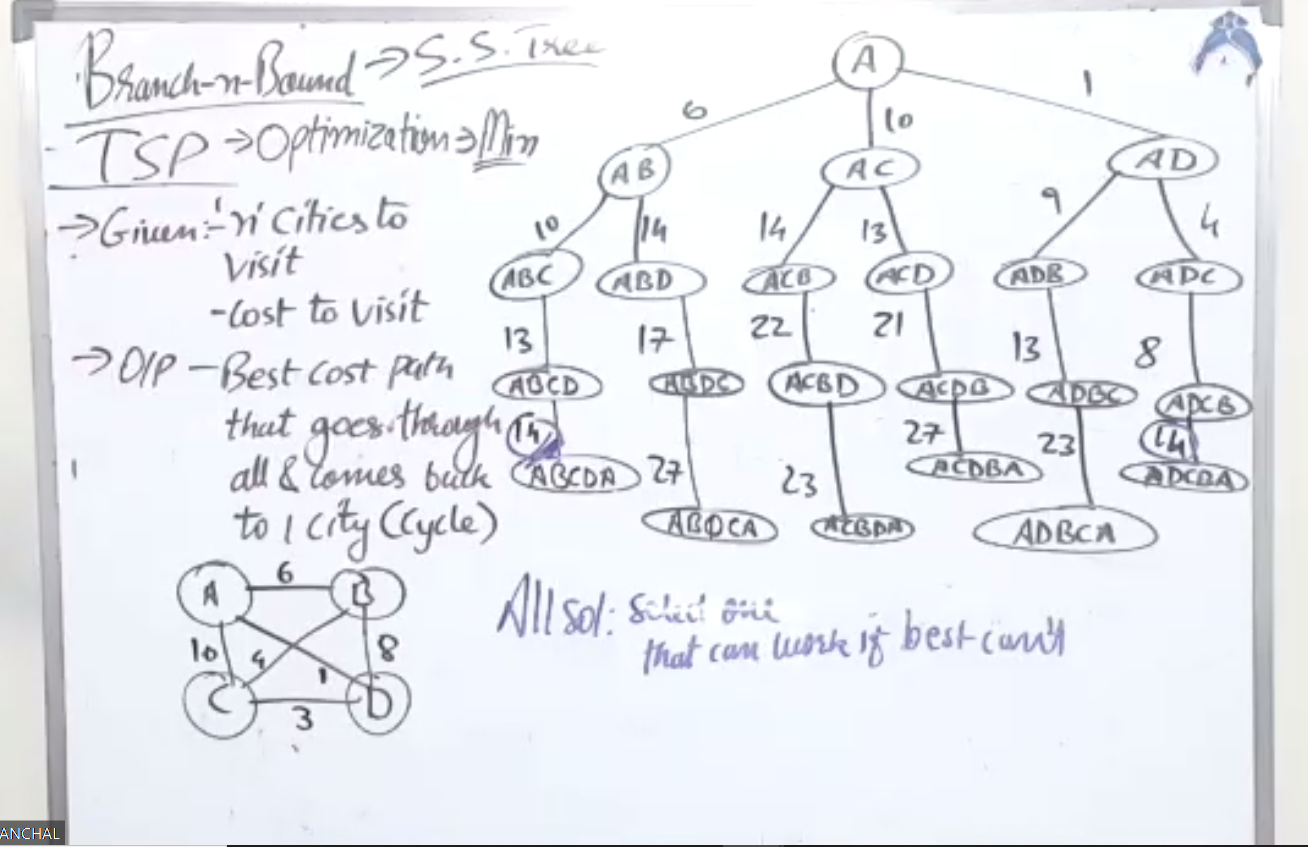 Branch-n-Bound → S.S. Tree
TSP → Optimization → Min
→ Given :- 'n' Cities to
Visit
- Cost to Visit
→ O/P - Best cost path
that goes through
all & comes back
to 1 city (Cycle)
A 6 B
10 4 1 8
C 3 D
A
6 10 1
AB AC AD
10 14 14 13 9 4
ABC ABD ACB ACD ADB ADC
13 17 22 21 13 8
ABCD ABDC ACBD ACDB ADBC ADCB
14 27 23 27 23 14
ABCDA ABDCA ACBDA ACDBA ADBCA ADCBA
All sol: Select one
that can work if best can't
ANCHAL